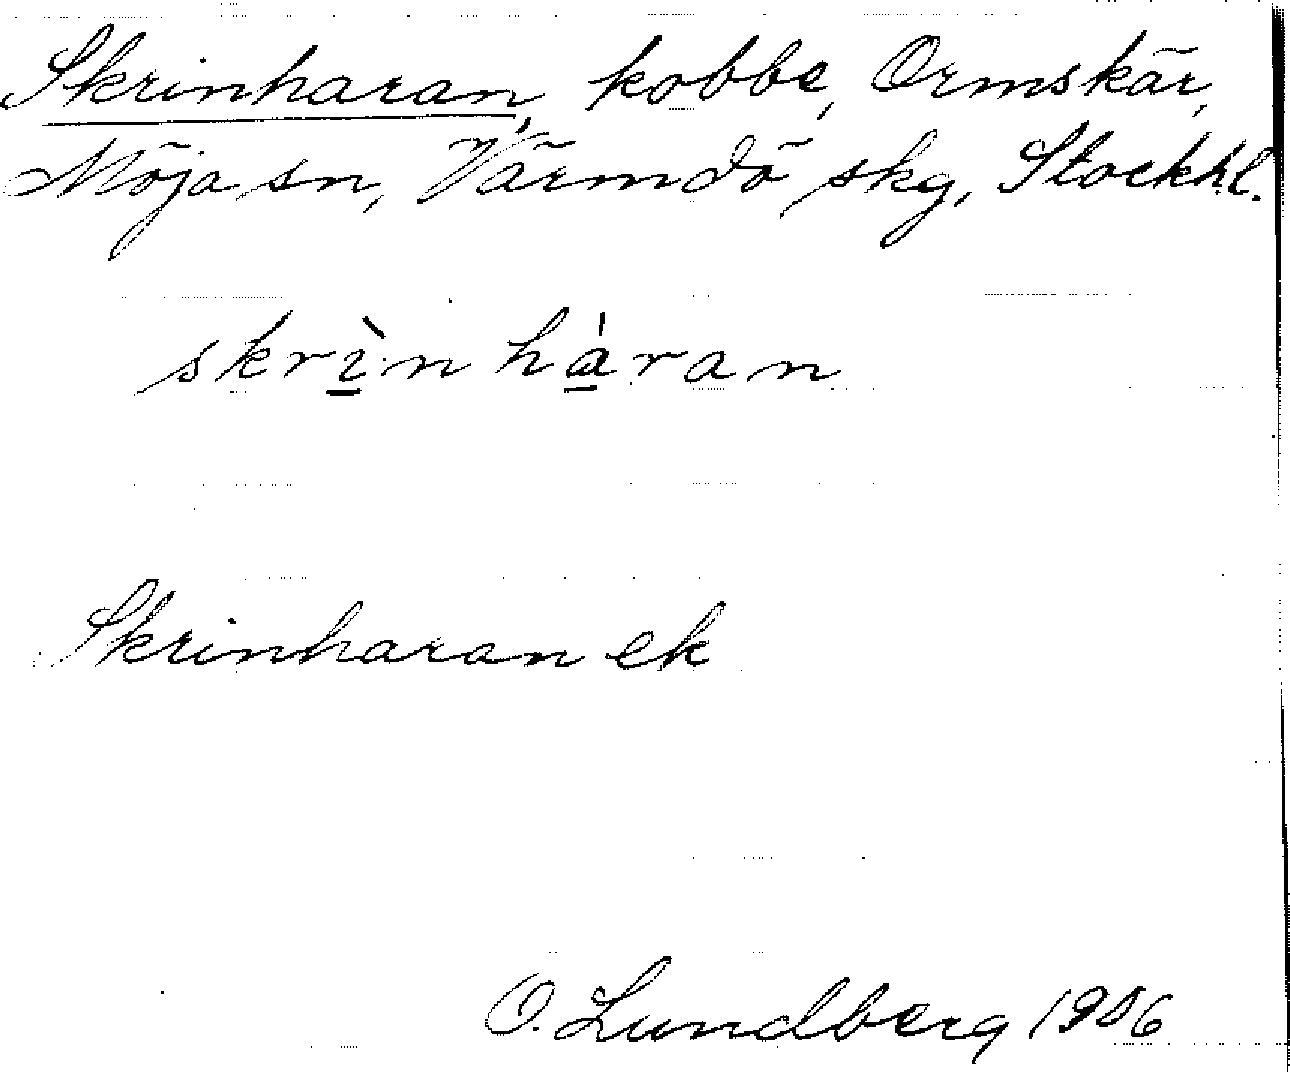 Skrinharan, kobbe, Ormskär,
Möja sn, Värmdö skg, Stockhl.
skrı̱̀nha̱̍ran
Skrinharan ek
O. Lundberg 1906